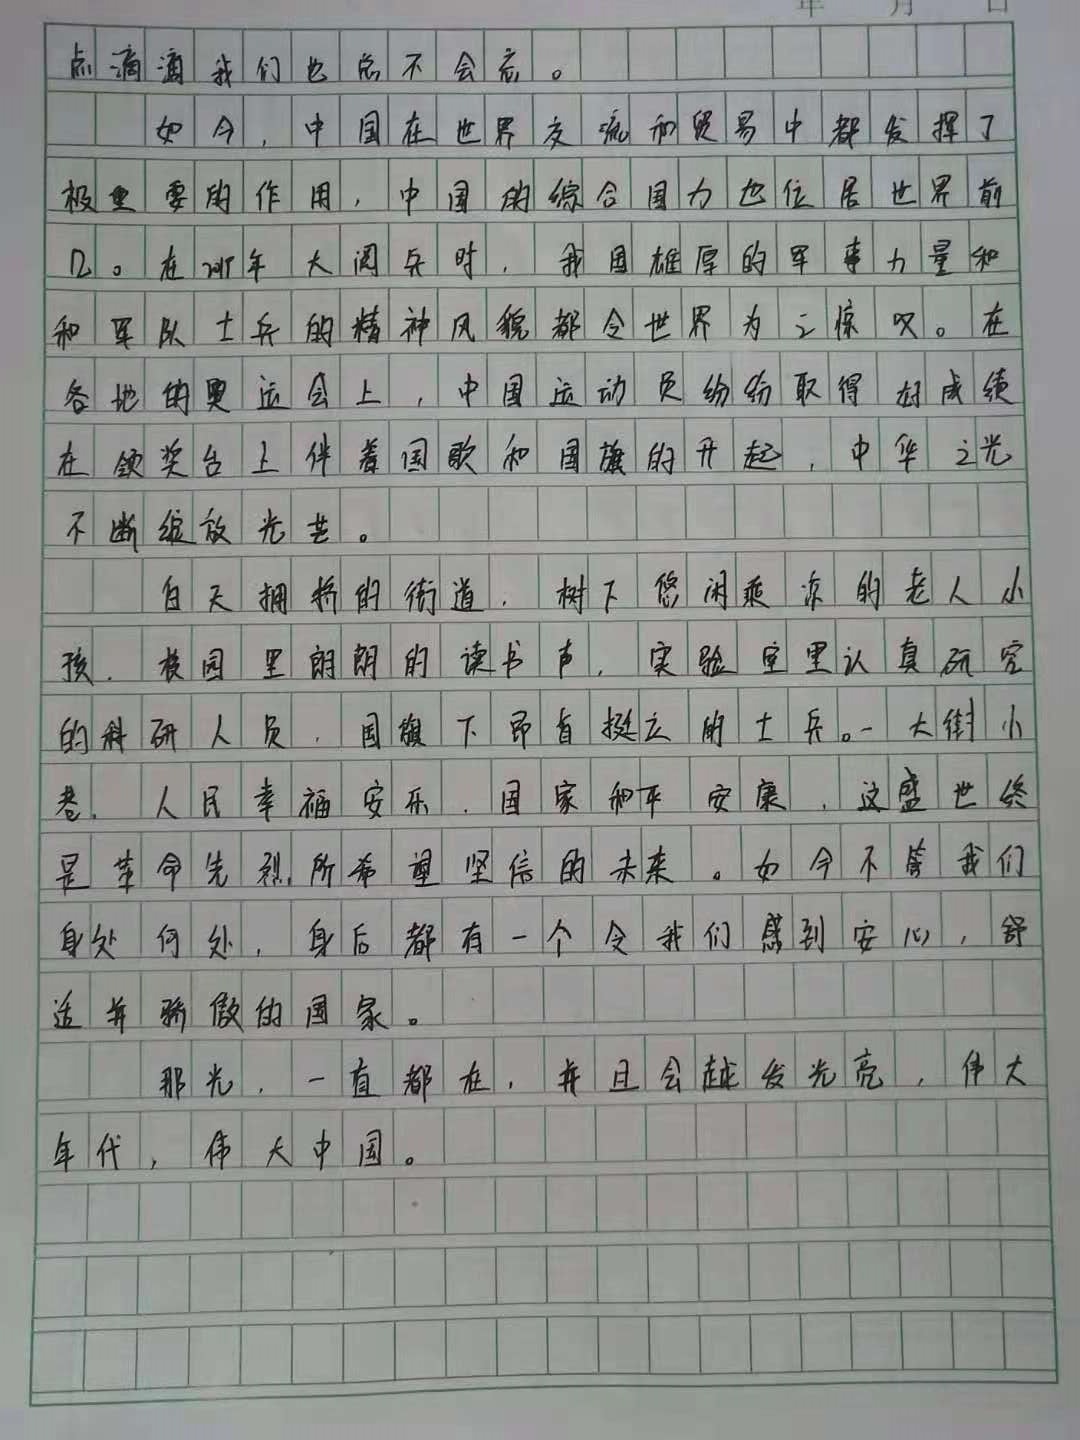 年 月 日
点滴滴我们也总不会忘。
如今，中国在世界交流和贸易中都发挥了
极重要的作用，中国的综合国力也位居世界前
几。在2015年大阅兵时，我国雄厚的军事力量和
和军队士兵的精神风貌都令世界为之惊叹。在
各地的奥运会上，中国运动员纷纷取得好成绩
在领奖台上伴着国歌和国旗的升起，中华之光
不断绽放光芒。
白天拥挤的街道，树下悠闲乘凉的老人小
孩，校园里朗朗的读书声，实验室里认真研究
的科研人员，国旗下昂首挺立的士兵。一大街小
巷，人民幸福安乐，国家和平安康，这盛世终
是革命先烈所希望坚信的未来。如今不管我们
身处何处，身后都有一个令我们感到安心，舒
适并骄傲的国家。
那光，一直都在，并且会越发光亮，伟大
年代，伟大中国。